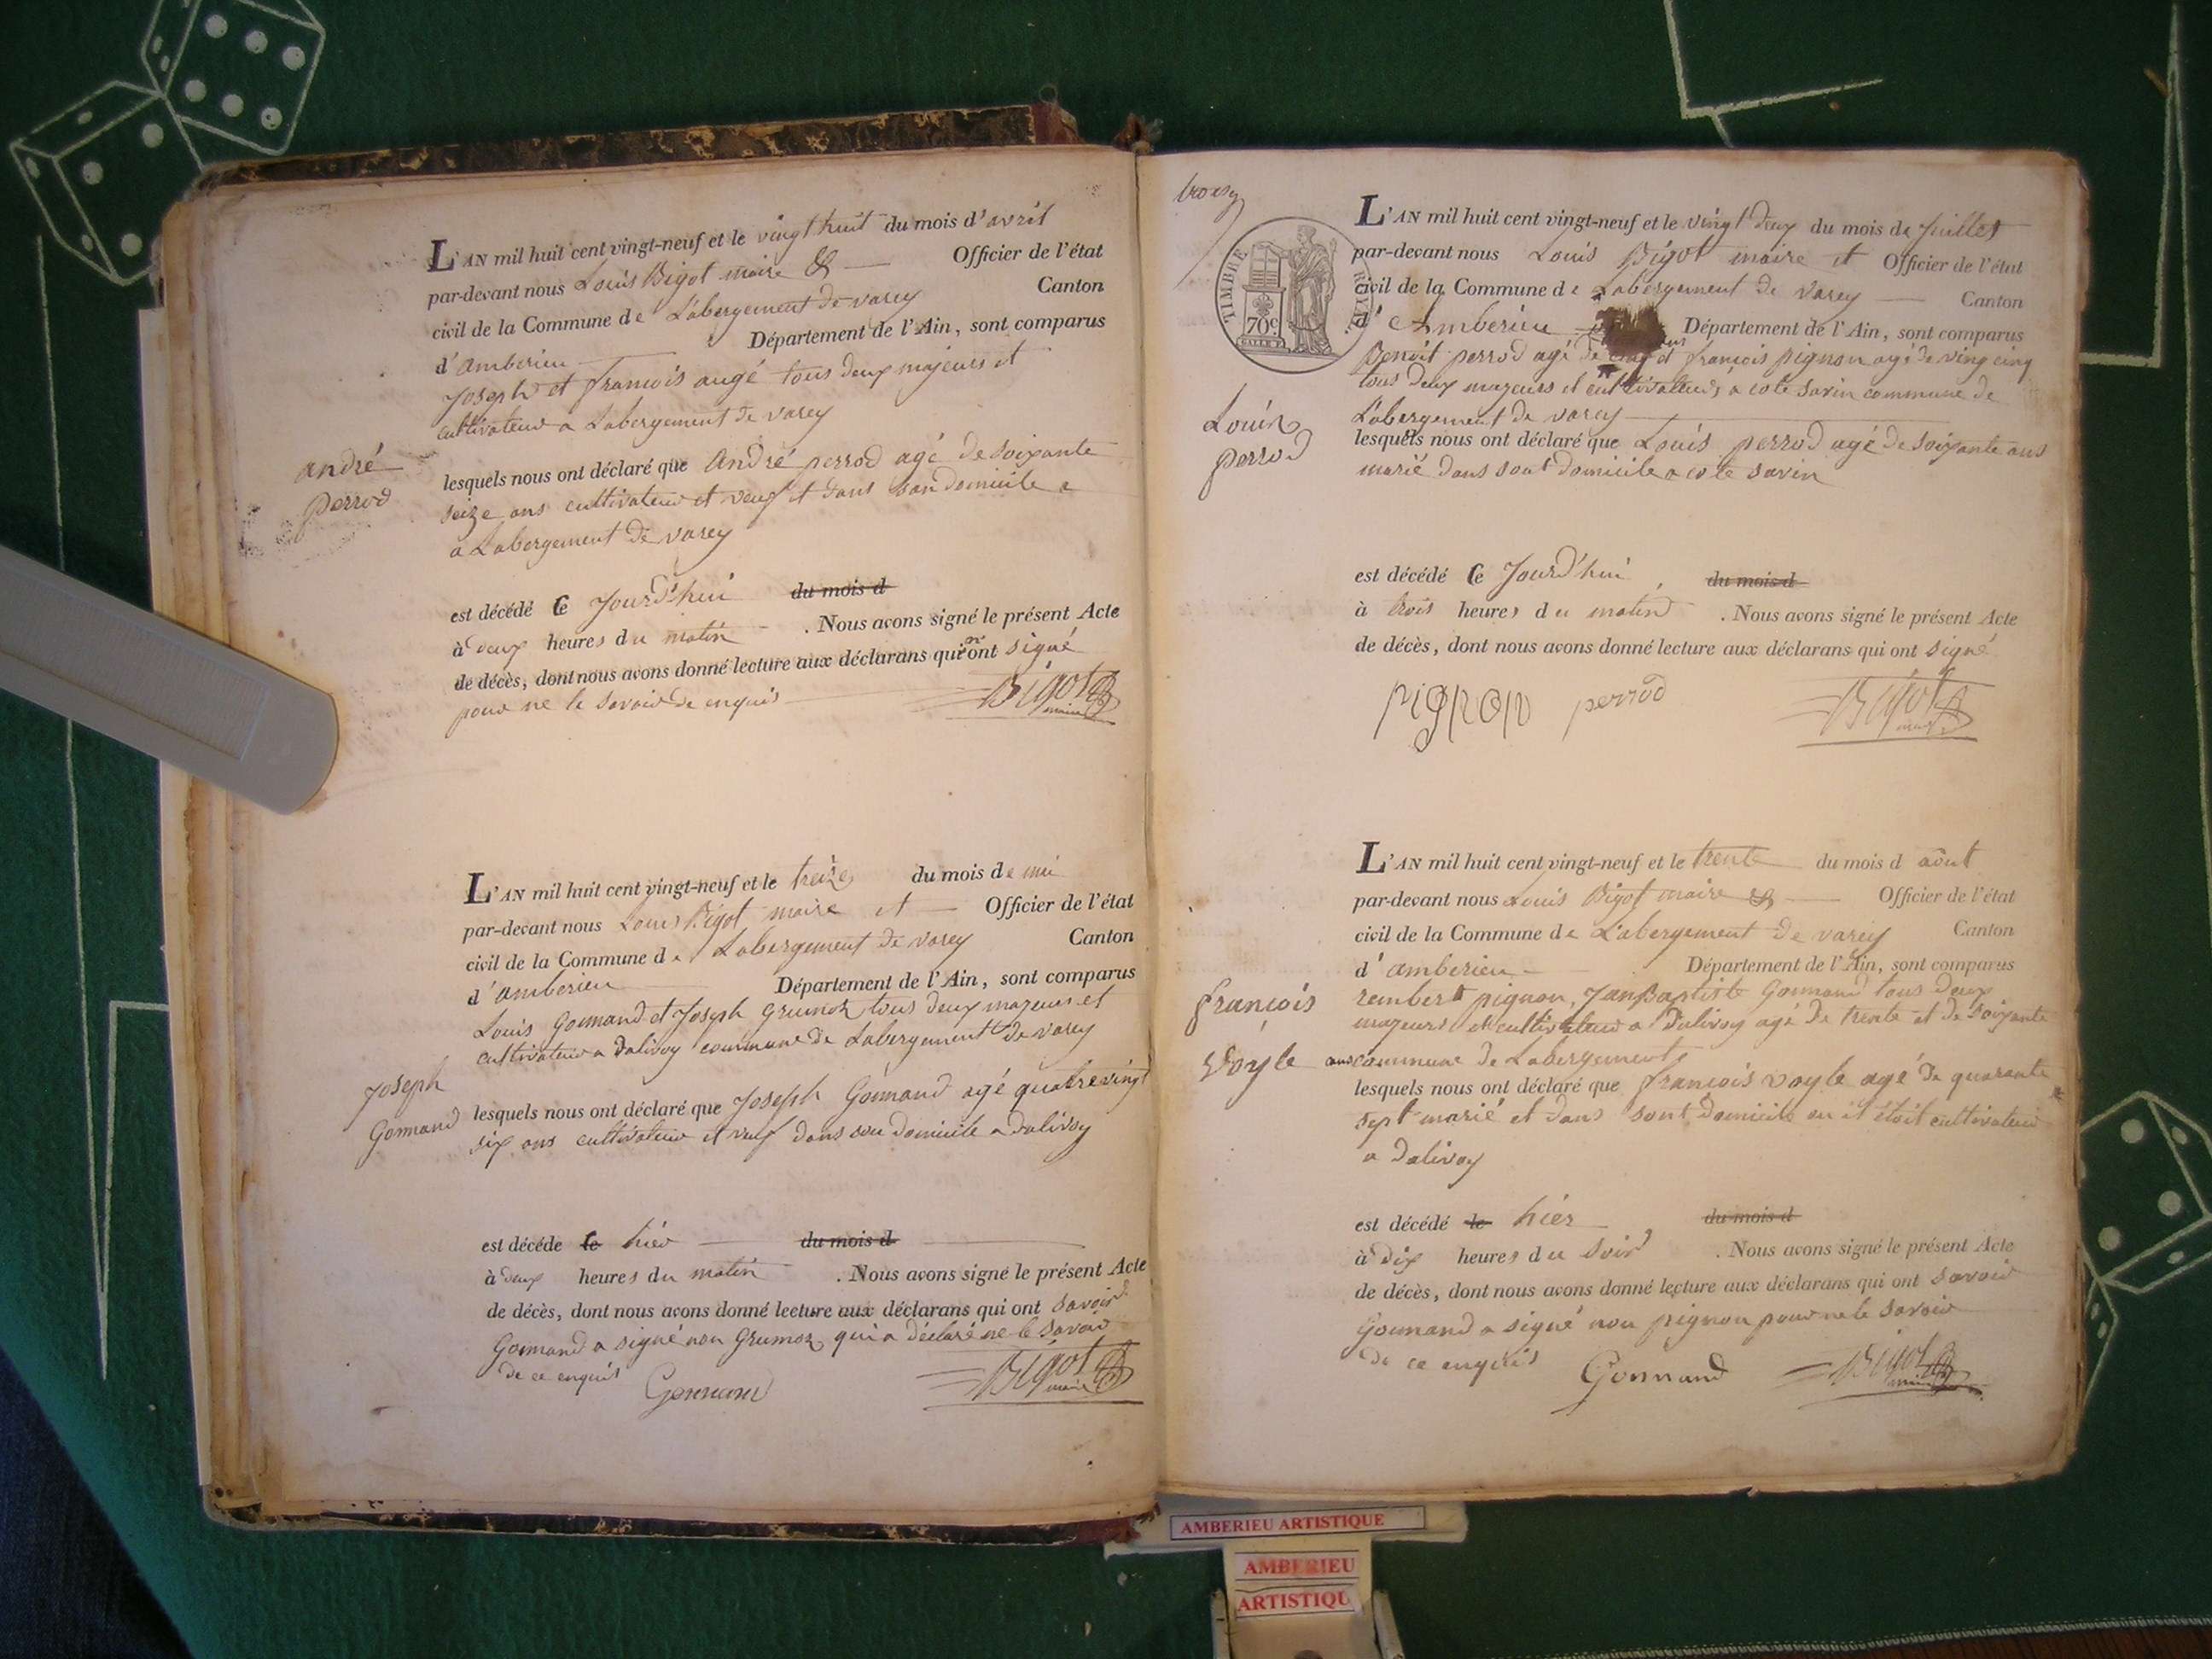 L'AN mil huit cent vingt-neuf et le vingt huit du mois d'avril
par-devant nous Louis Bigot maire & Officier de l'état
civil de la Commune de L'abergement de varey Canton
d'amberieu Département de l'Ain, sont comparus
Joseph et francois augé tous deux majeurs et
cultivateur a Labergement de varey
andré
perrod
lesquels nous ont déclaré que André perrod agé de soixante
seize ans cultivateur et veuf et dans son domicile a
a Labergement de varey
est décédé Ce Jourd'hui du mois d
à deux heures du matin . Nous avons signé le présent Acte
de décès, dont nous avons donné lecture aux déclarans qui ont signé
pour ne le savoir de enquis
Bigot
maire
L'AN mil huit cent vingt-neuf et le treize du mois de mai
par-devant nous Louis Bigot maire et Officier de l'état
civil de la Commune de Labergement de varey Canton
d'amberieu Département de l'Ain, sont comparus
Louis Gonnand et Joseph Grumoz tous deux majeurs et
cultivateur a dalivoy commune de Labergement de varey
Joseph
Gonnand
lesquels nous ont déclaré que Joseph Gonnand agé quatrevingt
six ans cultivateur et veuf dans son domicile a dalivoy
est décéde le hier du mois d
à deux heures du matin . Nous avons signé le présent Acte
de décès, dont nous avons donné lecture aux déclarans qui ont savoir
Gonnand a signé non Grumoz qui a déclaré ne le savoir
de ce enquis
Gonnand
Bigot
maire
TIMBRE ROYAL
70c
L'AN mil huit cent vingt-neuf et le vingt deux du mois de Juillet
par-devant nous Louis Bigot maire et Officier de l'état
civil de la Commune de Labergement de varey Canton
d'Amberieu Département de l'Ain, sont comparus
Benoit perrod agé de et francois pignon agé de ving cinq
tous deux majeurs et cultivateurs a cote savin commune de
L'abergement de varey
Louis
perrod
lesquels nous ont déclaré que Louis perrod agé de soixante ans
marié dans sont domicile a cote savin
est décédé Ce Jourd'hui du mois d
à trois heures du matin . Nous avons signé le présent Acte
de décès, dont nous avons donné lecture aux déclarans qui ont signé
pignon perrod
Bigot
maire
L'AN mil huit cent vingt-neuf et le trente du mois d août
par-devant nous Louis Bigot maire & Officier de l'état
civil de la Commune de L'abergement de varey Canton
d'amberieu Département de l'Ain, sont comparus
rembert pignon, JanBaptiste Gonnand tous deux
majeurs et cultivateur a Dalivoy agé de trente et de soixante
ans commune de Labergement
francois
Voyle
lesquels nous ont déclaré que francois voyle agé de quarante
sept marié et dans sont domicile ou il étoit cultivateur
a Dalivoy
est décédé le hier du mois d
à dix heures du soir . Nous avons signé le présent Acte
de décès, dont nous avons donné lecture aux déclarans qui ont savoir
Gonnand a signé non pignon pour ne le savoir
de ce enquis
Gonnand
Bigot
maire
AMBERIEU ARTISTIQUE
AMBERIEU
ARTISTIQU